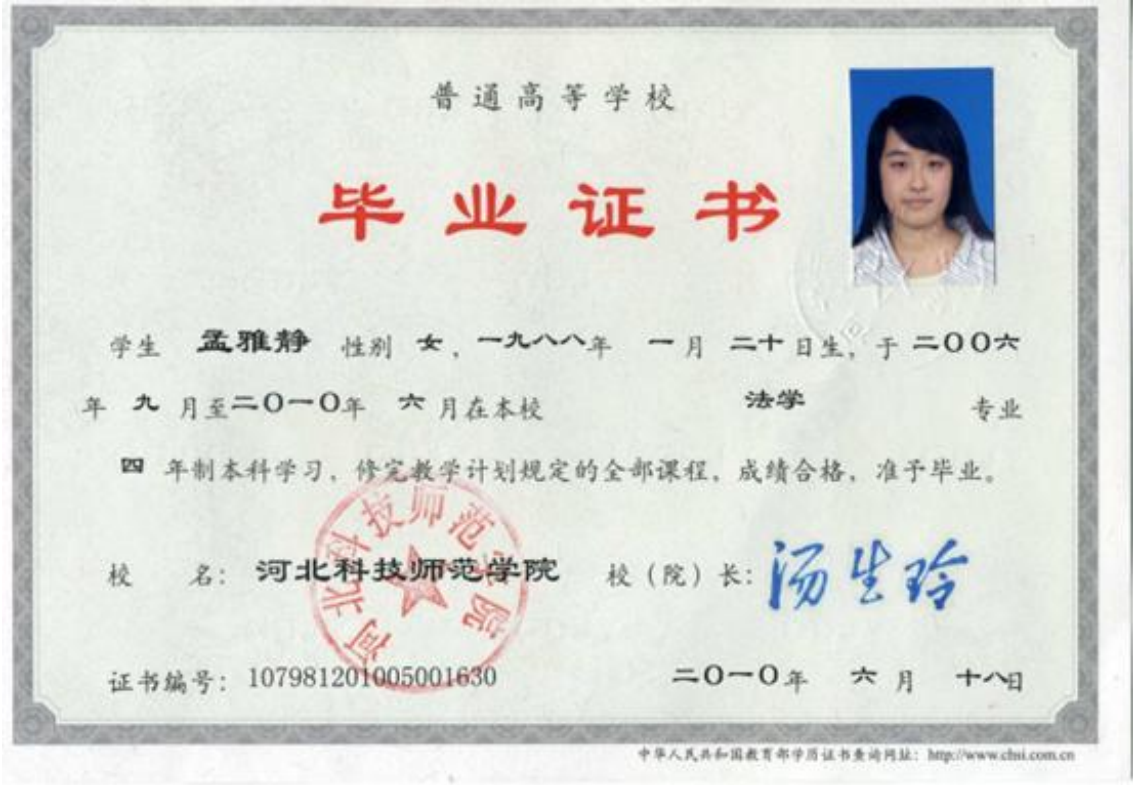 普通高等学校
毕业证书
学生 孟雅静 性别 女，一九八八年 一月 二十日生，于二〇〇六
年 九 月至二〇一〇年 六 月在本校 法学 专业
四 年制本科学习，修完教学计划规定的全部课程，成绩合格，准予毕业。
校 名：河北科技师范学院 校（院）长：汤生玲
河北科技师范学院
证书编号：107981201005001630 二〇一〇年 六 月 十八日
中华人民共和国教育部学历证书查询网址：http://www.chsi.com.cn